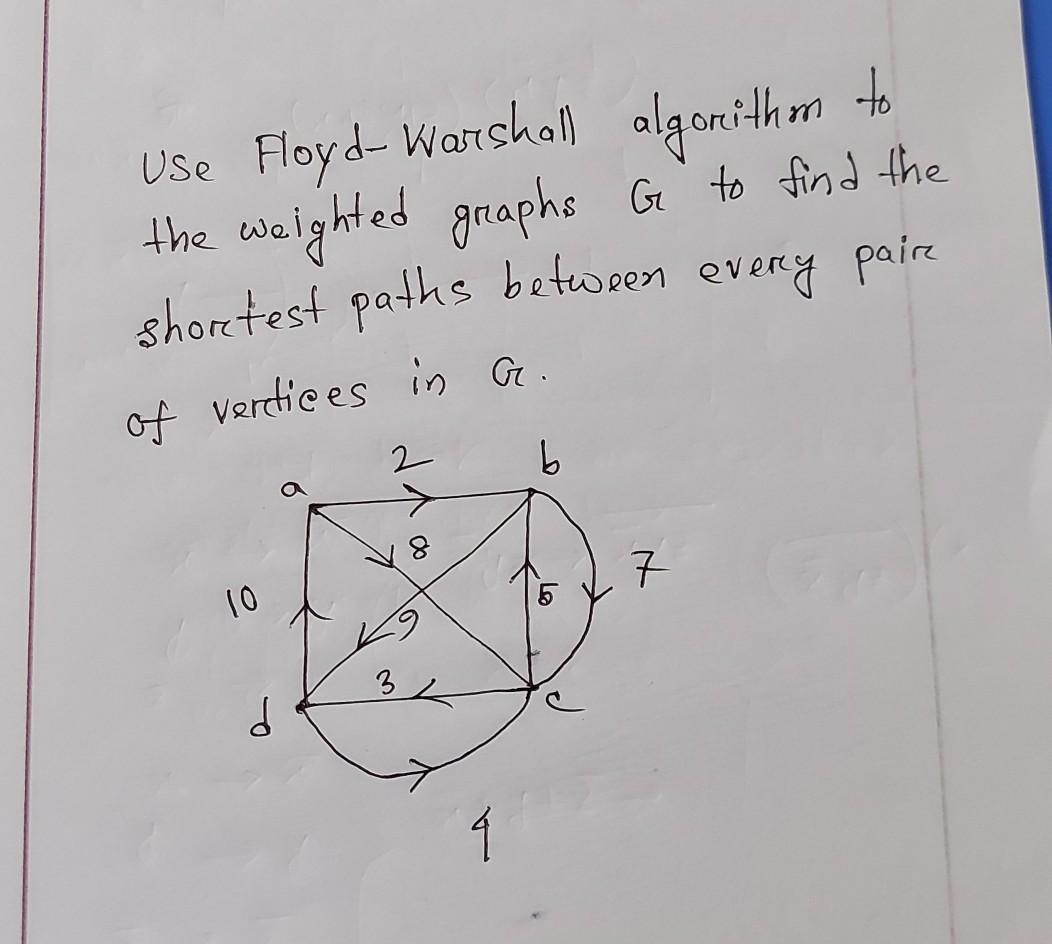 Use Floyd-Warshall algorithm to
the weighted graphs G to find the
shortest paths between every pair
of vertices in G.
2
a
b
8
7
10
5
9
3
d
c
4